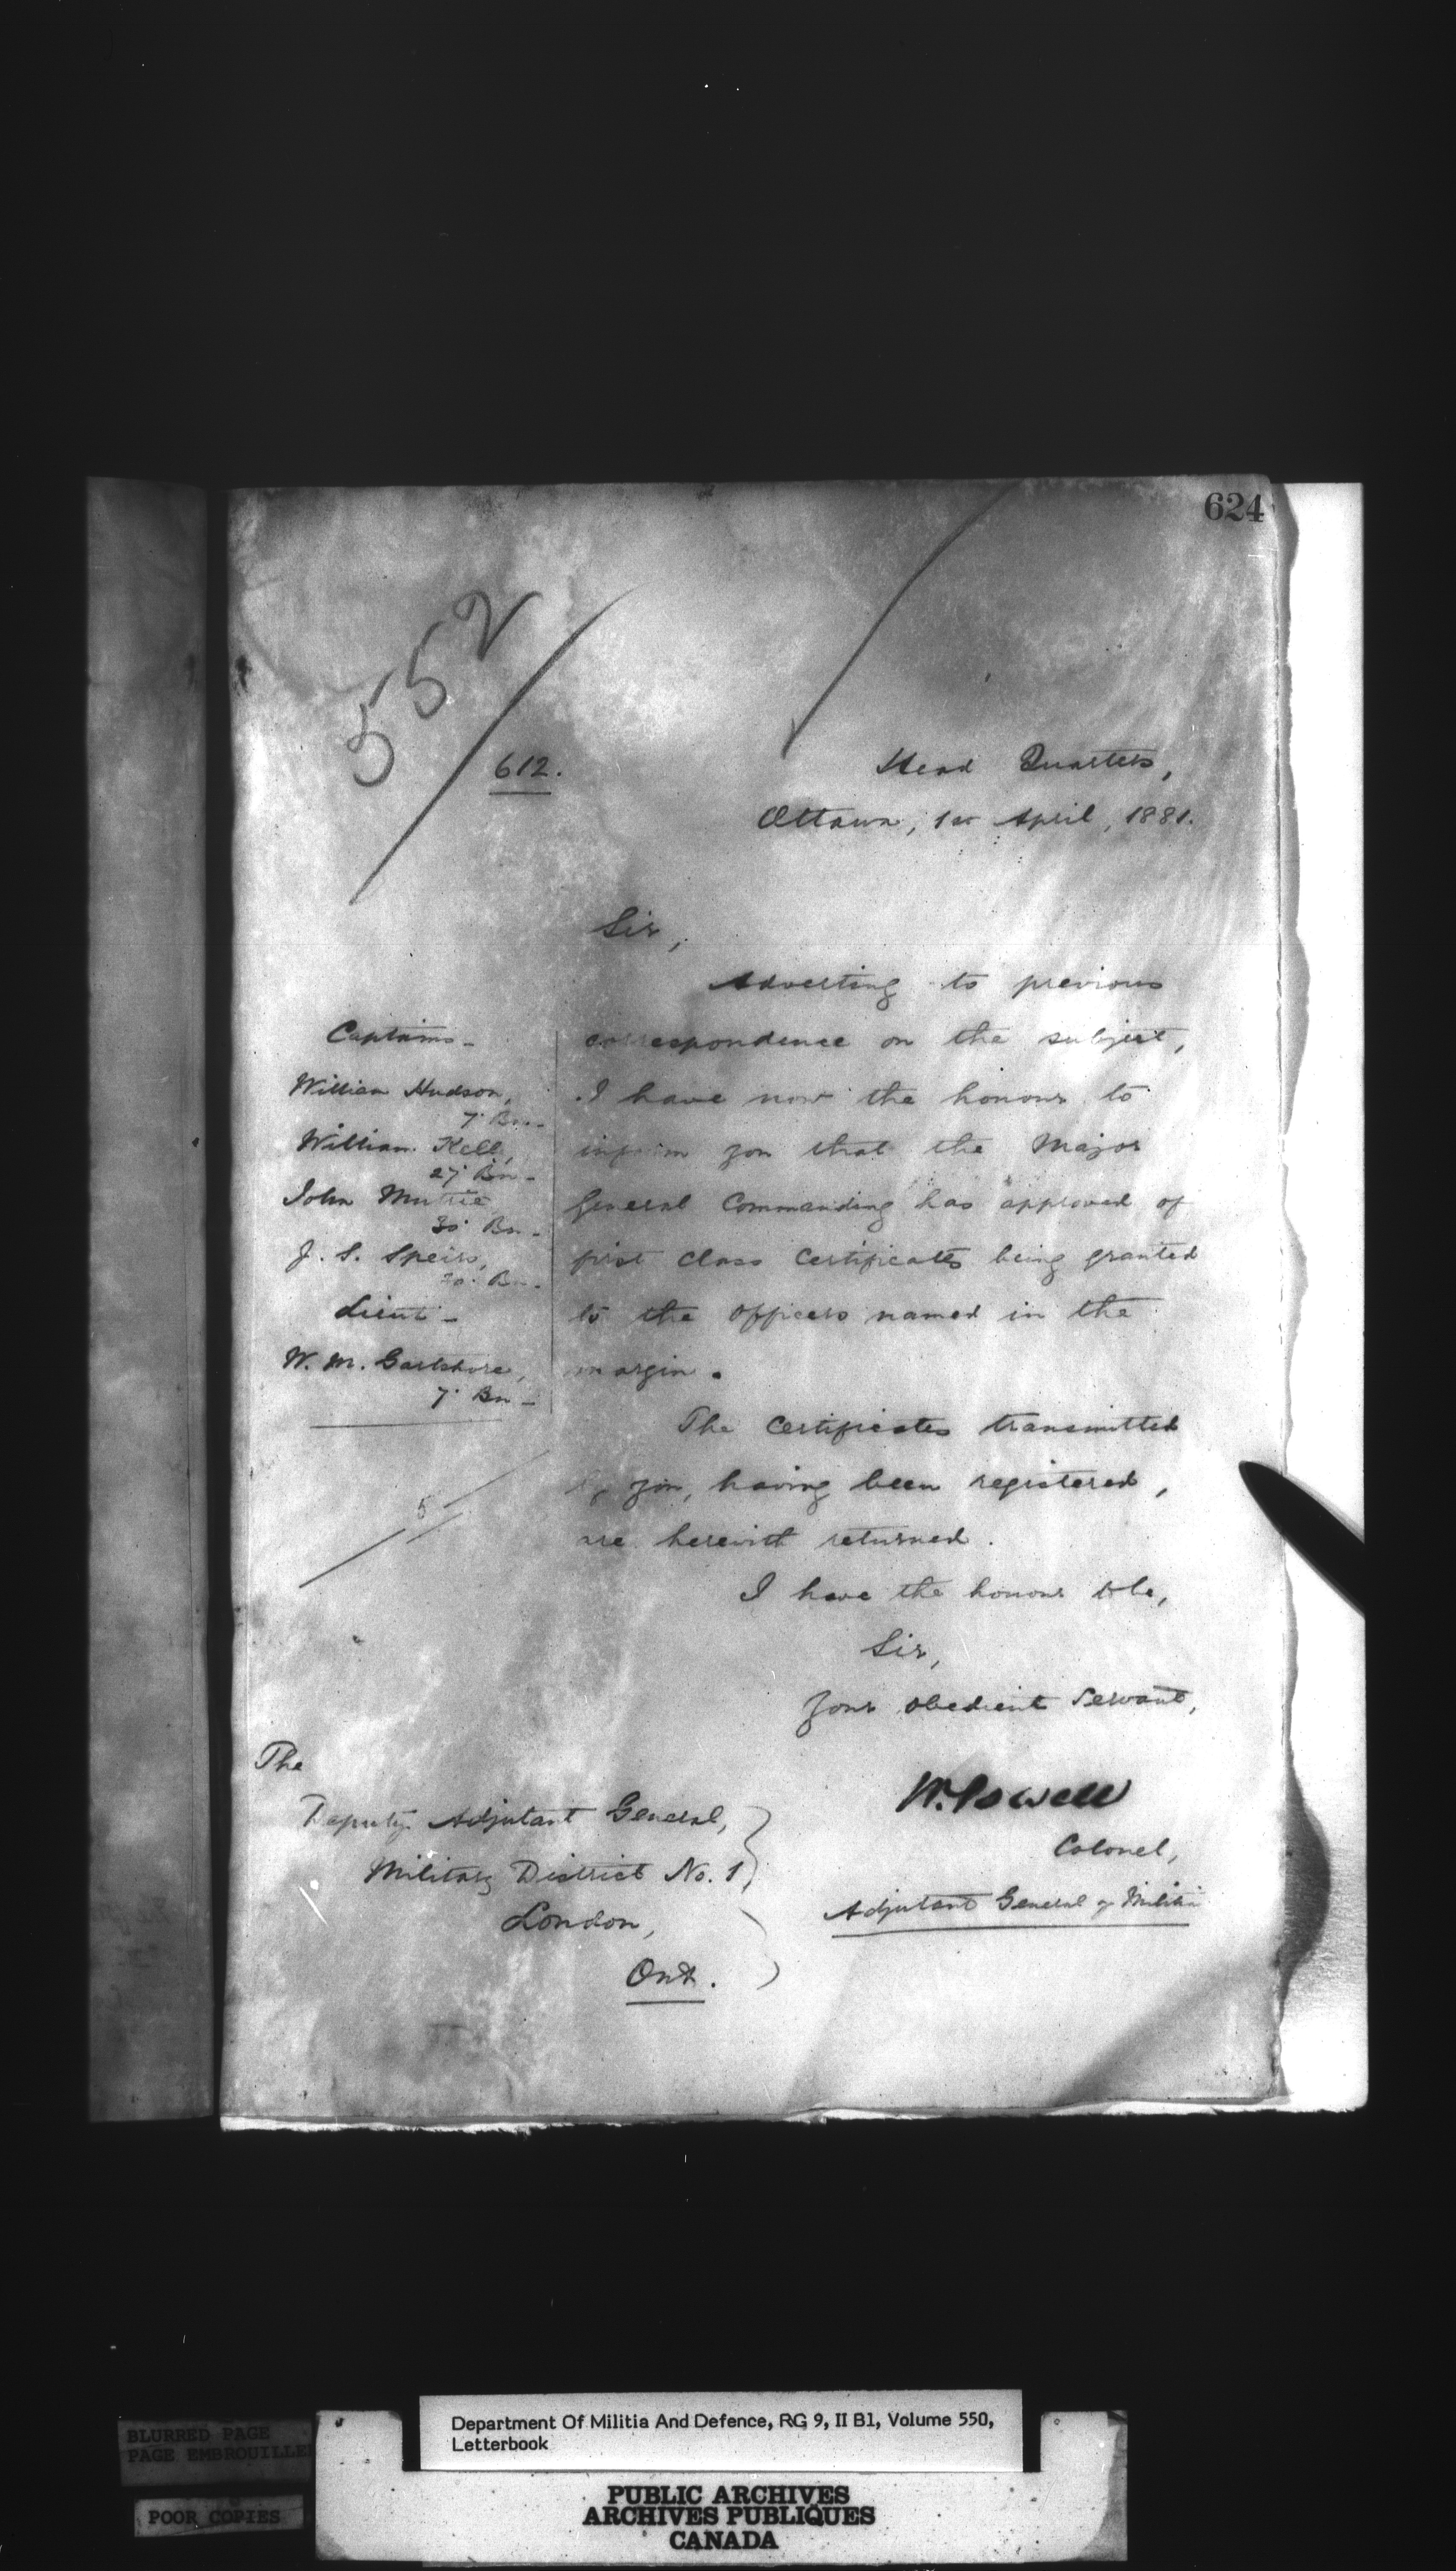 624
552
612.
Head Quarters,
Ottawa, 1st April, 1881.
Sir,
Adverting to previous
correspondence on the subject,
I have now the honour to
inform you that the Major
General Commanding has approved of
first class Certificates being granted
to the Officers named in the
margin.
Captains -
William Hudson,
7' Bn -
William Kell,
27' Bn -
John Mutrie
30' Bn -
J. S. Speirs,
30' Bn -
Lieut -
W. M. Gartshore,
7' Bn -
5
The Certificates transmitted
by you, having been registered,
are herewith returned.
I have the honour to be,
Sir,
Your obedient Servant,
W. Powell
Colonel,
Adjutant General of Militia
The
Deputy Adjutant General,
Military District No. 1,
London,
Ont.
BLURRED PAGE
PAGE EMBROUILLEE
POOR COPIES
Department Of Militia And Defence, RG 9, II B1, Volume 550,
Letterbook
PUBLIC ARCHIVES
ARCHIVES PUBLIQUES
CANADA